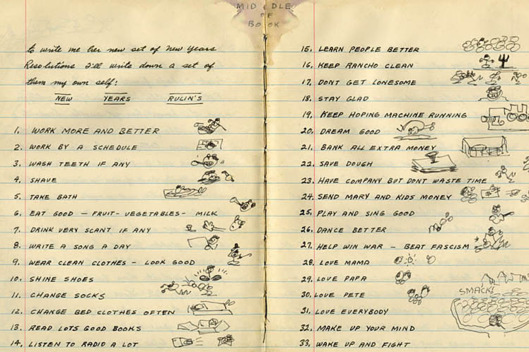 MIDDLE
OF
BOOK
to write me her new set of New Years
Resolutions I'll write down a set of
them my own self:
NEW YEARS RULIN'S
1. WORK MORE AND BETTER
2. WORK BY A SCHEDULE
3. WASH TEETH IF ANY
4. SHAVE
5. TAKE BATH
6. EAT GOOD - FRUIT - VEGETABLES - MILK
7. DRINK VERY SCANT IF ANY
8. WRITE A SONG A DAY
9. WEAR CLEAN CLOTHES - LOOK GOOD
10. SHINE SHOES
11. CHANGE SOCKS
12. CHANGE BED CLOTHES OFTEN
13. READ LOTS GOOD BOOKS
14. LISTEN TO RADIO A LOT
15. LEARN PEOPLE BETTER
16. KEEP RANCHO CLEAN
17. DONT GET LONESOME
18. STAY GLAD
19. KEEP HOPING MACHINE RUNNING
20. DREAM GOOD
21. BANK ALL EXTRA MONEY
22. SAVE DOUGH
23. HAVE COMPANY BUT DONT WASTE TIME
24. SEND MARY AND KIDS MONEY
25. PLAY AND SING GOOD
26. DANCE BETTER
27. HELP WIN WAR - BEAT FASCISM
28. LOVE MAMA
29. LOVE PAPA
30. LOVE PETE
SMACK!
31. LOVE EVERYBODY
32. MAKE UP YOUR MIND
33. WAKE UP AND FIGHT